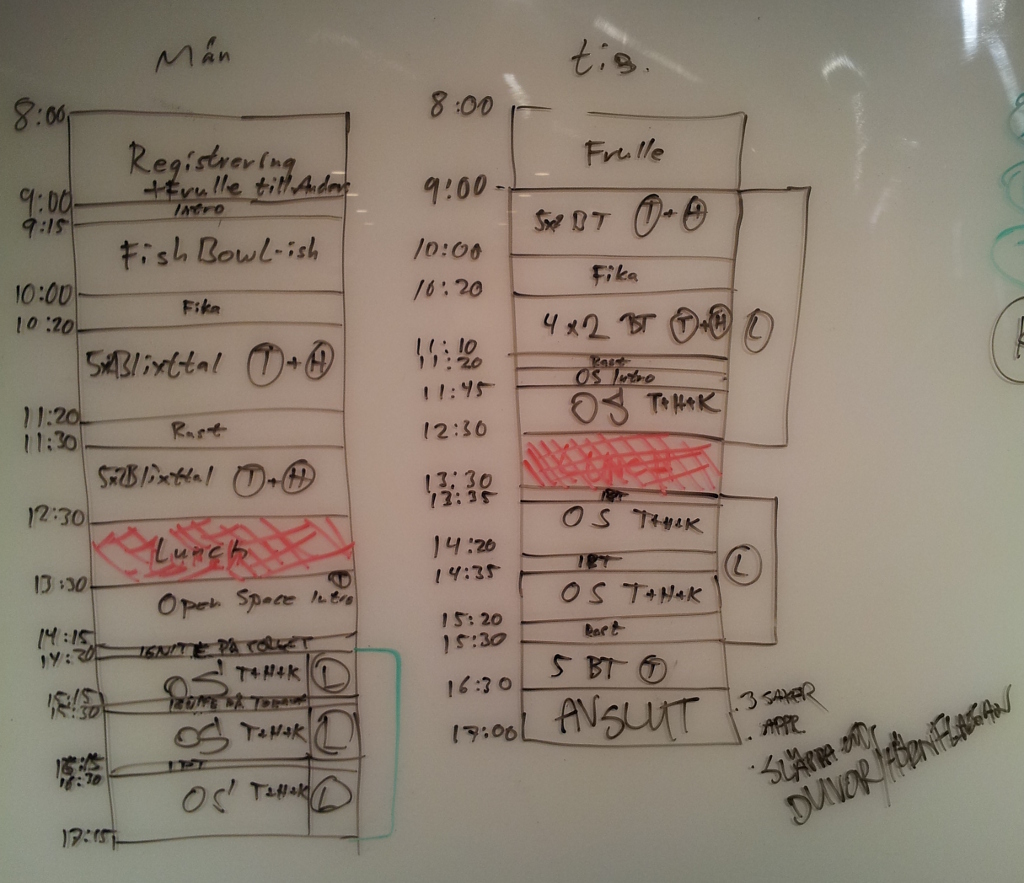 Mån
8:00
Registrering
+Frulle till Anders
9:00
Intro
9:15
FishBowl-ish
10:00
Fika
10:20
Blixttal T + H
11:20
Rast
11:30
5x2Blixttal T + H
12:30
Lunch
13:30
T
Open Space Intro
14:15
IGNITE PÅ
14:20
OS T+H+K L
15:15
15:30
OS T+H+K L
16:15
16:30
OS T+H+K L
17:15
tis.
8:00
Frulle
9:00
BT T + H
10:00
Fika
10:20
4x2 BT T+H L
11:10
Rast
11:20
OS Intro
11:45
OS T+H+K
12:30
13:30
13:35
OS T+H+K
14:20
L
14:35
OS T+H+K
15:20
Rast
15:30
5 BT T
16:30
AVSLUT
17:00
. 3 SAKER
. APPL
. SLÄPPA
DUVOR